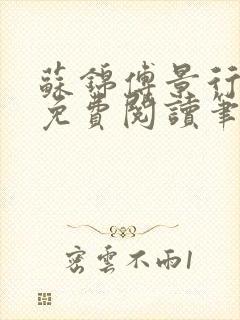 蘇錦傅景行
免費閱讀筆
密雲不雨1